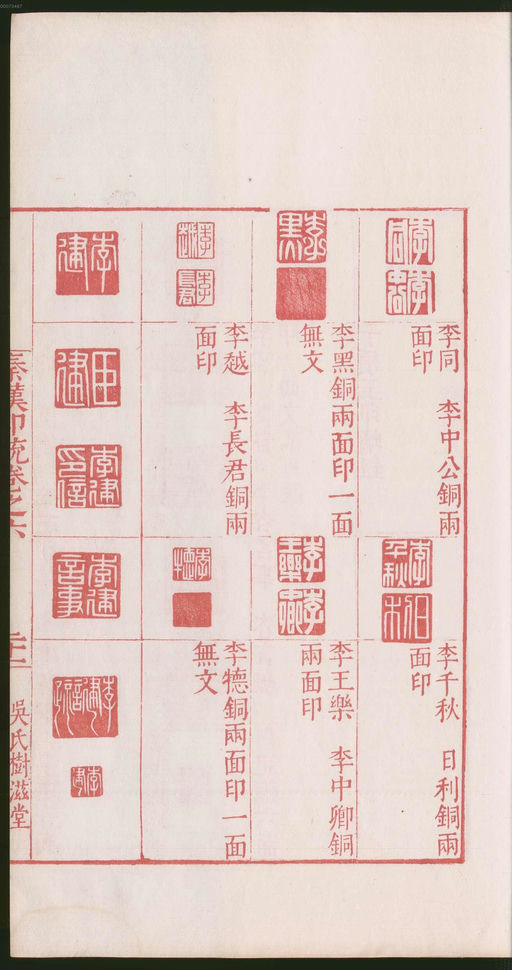 李同　李中公銅兩
面印
李千秋　日利銅兩
面印
李黑銅兩面印一面
無文
李王樂　李中卿銅
兩面印
李越　李長君銅兩
面印
李德銅兩面印一面
無文
李建
臣建
李建印信
李建言事
秦漢印統卷之六
二十一
吳氏樹滋堂
00073487